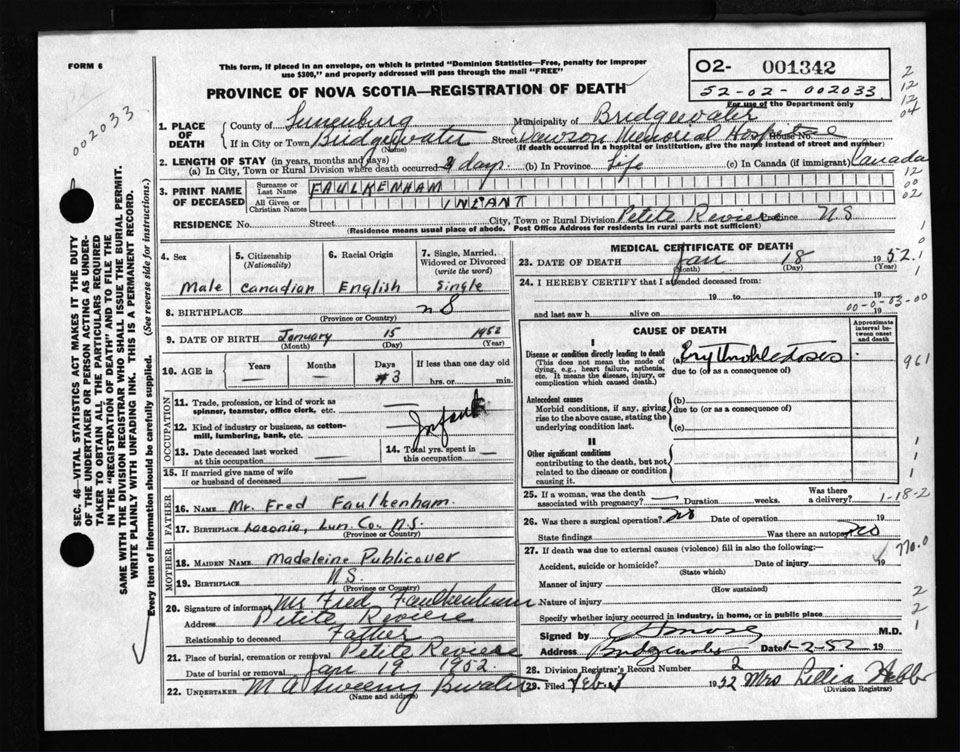 FORM 6
This form, if placed in an envelope, on which is printed "Dominion Statistics—Free, penalty for improper
use $300," and properly addressed will pass through the mail "FREE"
PROVINCE OF NOVA SCOTIA—REGISTRATION OF DEATH
O2- 001342
52-02-002033
For use of the Department only
002033
1. PLACE OF DEATH
County of Lunenburg Municipality of Bridgewater
If in City or Town Bridgewater (Name) Street Dawson Memorial Hospital House No.
(If death occurred in a hospital or institution, give the name instead of street and number)
2. LENGTH OF STAY (in years, months and days)
(a) In City, Town or Rural Division where death occurred 3 days. (b) In Province Life (c) In Canada (if immigrant) Canada
3. PRINT NAME OF DECEASED
Surname or Last Name FAULKENHAM
All Given or Christian Names INFANT
RESIDENCE No. Street City, Town or Rural Division Petite Reviere Province NS
(Residence means usual place of abode. Post Office Address for residents in rural parts not sufficient)
4. Sex Male
5. Citizenship (Nationality) Canadian
6. Racial Origin English
7. Single, Married, Widowed or Divorced (write the word) Single
8. BIRTHPLACE NS
(Province or Country)
9. DATE OF BIRTH January 15 1952
(Month) (Day) (Year)
10. AGE in Years — Months — Days 3 If less than one day old hrs. or min.
OCCUPATION
11. Trade, profession, or kind of work as spinner, teamster, office clerk, etc. —
12. Kind of industry or business, as cotton-mill, lumbering, bank, etc. Infant
13. Date deceased last worked at this occupation —
14. Total yrs. spent in this occupation —
15. If married give name of wife or husband of deceased —
FATHER
16. Name Mr. Fred Faulkenham.
17. Birthplace Laconia, Lun. Co. N.S.
(Province or Country)
MOTHER
18. MAIDEN NAME Madeleine Publicover
19. Birthplace NS.
(Province or Country)
20. Signature of informant Mr Fred Faulkenham
Address Petite Reviere
Relationship to deceased Father
21. Place of burial, cremation or removal Petite Reviere
Date of burial or removal Jan 19 1952
22. UNDERTAKER M A Sweeny Bwater
(Name and address)
MEDICAL CERTIFICATE OF DEATH
23. DATE OF DEATH Jan 18 1952.
(Month) (Day) (Year)
24. I HEREBY CERTIFY that I attended deceased from:
19 to 19
and last saw h alive on 19
00-0-03-00
CAUSE OF DEATH
Approximate interval between onset and death
I
Disease or condition directly leading to death
(This does not mean the mode of dying, e.g., heart failure, asthenia, etc. It means the disease, injury, or complication which caused death.)
(a)
due to (or as a consequence of)
Antecedent causes
Morbid conditions, if any, giving rise to the above cause, stating the underlying condition last.
(b)
due to (or as a consequence of)
(c)
II
Other significant conditions
contributing to the death, but not related to the disease or condition causing it.
961
25. If a woman, was the death associated with pregnancy? — Duration weeks. Was there a delivery?
1-18-2
26. Was there a surgical operation? no Date of operation 19
State findings Was there an autopsy? no
27. If death was due to external causes (violence) fill in also the following:—
Accident, suicide or homicide? Date of injury 19
(State which)
770.0
Manner of injury
(How sustained)
Nature of injury
Specify whether injury occurred in industry, in home, or in public place
Signed by M.D.
Address Bridgewater Date 1-2-52
28. Division Registrar's Record Number 2
29. Filed Feb 1952 Mrs Lillia Hebb
(Division Registrar)
SEC. 46—VITAL STATISTICS ACT MAKES IT THE DUTY
OF THE UNDERTAKER OR PERSON ACTING AS UNDER-
TAKER TO OBTAIN ALL THE PARTICULARS REQUIRED
IN THE "REGISTRATION OF DEATH" AND TO FILE THE
SAME WITH THE DIVISION REGISTRAR WHO SHALL ISSUE THE BURIAL PERMIT.
WRITE PLAINLY WITH UNFADING INK. THIS IS A PERMANENT RECORD.
Every item of information should be carefully supplied. (See reverse side for instructions.)